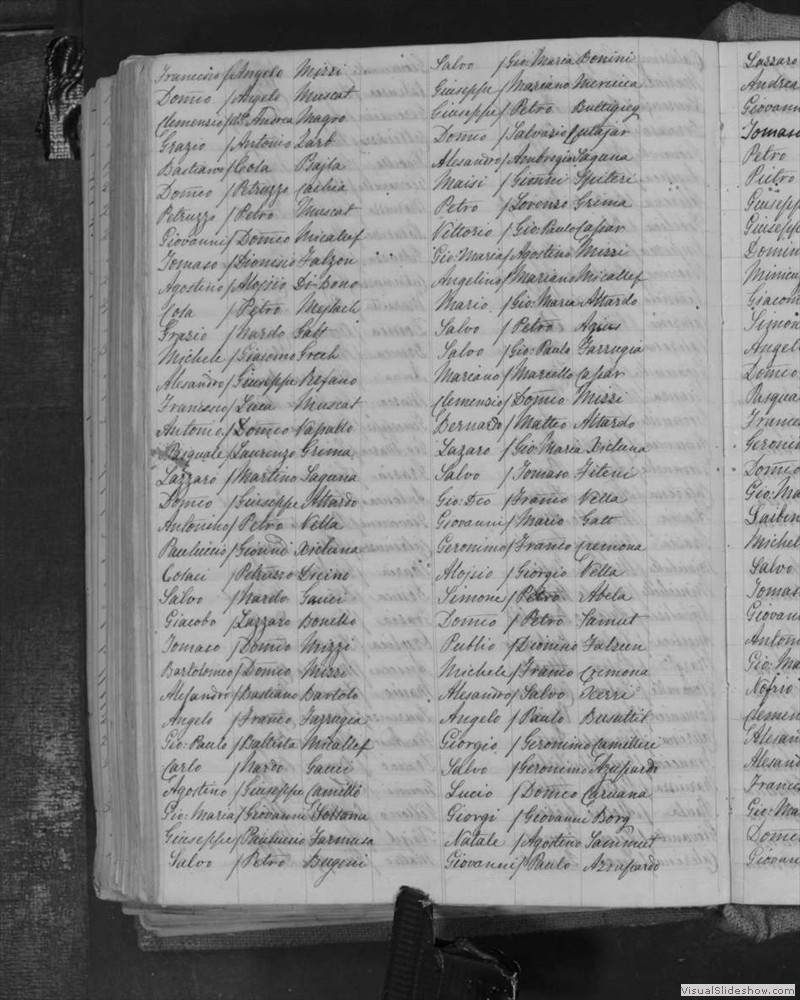 Francesco / Angelo Mizzi
Domeo / Angelo Muscat
Clemensio / Andrea Magro
Grazio / Antonio Zarb
Bastiano / Cola Psajla
Domeo / Petruzzo
Petruzzo / Petro Muscat
Giovanni / Domeo Micallef
Tomaso / Dionisio Falzon
Agostino / Alojsio Di-Bono
Cosa / Petro Mejlach
Grazio / Nardo Galt
Michele / Giacomo Grech
Alesandro / Giuseppe
Francesco / Luca Muscat
Antonio / Domeo
Pasquale / Laurenzo Grema
Lazzaro / Martino Saguna
Domeo / Giuseppe Attardo
Antonino / Petro Vella
Pauluccio / Gionni Xicluna
/ Petruzzo
Salvo / Nardo Gauci
Giacobo / Lazzaro Bonello
Tomaso / Domeo Mizzi
Bartolomeo / Domeo Mizzi
Alesandro / Bastiano Bartolo
Angelo / Franco Farrugia
Gio: Paulo / Battista Micallef
Carlo / Nardo Gauci
Agostino / Giuseppe Camilli
Gio: Maria / Giovanni
Giuseppe / Pauluccio Farmusa
Salvo / Petro Bugeni
Salvo / Gio: Maria Bonini
Giuseppe / Mariano Mercieca
Giuseppe / Petro Buttigieg
Domeo / Salvasio Cutajar
Alesandro / Ambrogio Saguna
Maisi / Gionni Spiteri
Petro / Lorenzo Grima
Vittorio / Gio: Paulo Cassar
Gio: Maria / Agostino Mizzi
Angelino / Mariano Micallef
Mario / Gio: Maria Attardo
Salvo / Petro Agius
Salvo / Gio: Paulo Farrugia
Mariano / Marcello Cassar
Clemensio / Domeo Mizzi
Bernardo / Matteo Attardo
Lazaro / Gio: Maria Xicluna
Salvo / Tomaso Fiteni
Gio: Deo / Franco Vella
Giovanni / Mario Galt
Geronimo / Franco Cremona
Alojsio / Giorgio Vella
Simone / Petro Abela
Domeo / Petro Samut
Publio / Dionisio Falzun
Michele / Franco Cremona
Alesandro / Salvo Xerri
Angelo / Paulo Busuttil
Giorgio / Geronimo Camilleri
Salvo / Geronimo Azupardo
Lucio / Domeo Caruana
Giorgi / Giovanni Borg
Natale / Agostino Sammut
Giovanni / Paulo Azzupardo
Lazzaro
Andrea
Giovann
Tomaso
Petro
Pietro
Giusepp
Giusepp
Domin
Giacom
Simon
Angel
Domeo
Pasqua
France
Geroni
Domeo
Gio: Ma
Michel
Salvo
Tomas
Giovan
Anton
Gio: Ma
Nofrio
Clemen
Alesan
Alesan
France
Gio: Ma
Dome
Giovan
VisualSlideshow.com